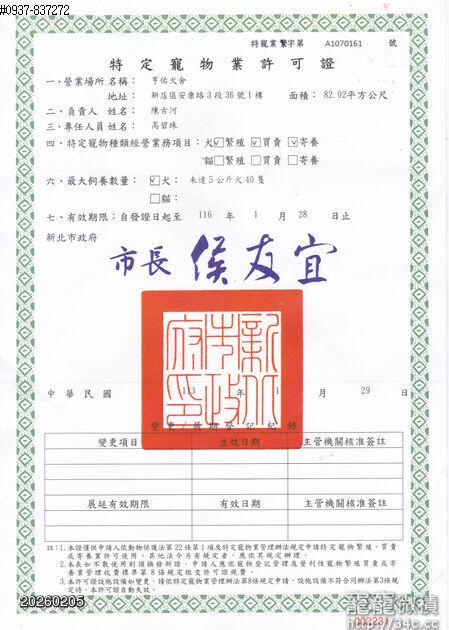 #0937-837272
特寵業繁字第 A1070161 號
特定寵物業許可證
一、營業場所名稱： 亨佑犬舍
地址： 新店區安康路3段36號1樓 面積：82.02平方公尺
二、負責人姓名： 陳古河
三、專任人員姓名： 高碧珠
四、特定寵物種類經營業務項目：犬☑繁殖 ☑買賣 ☑寄養
貓□繁殖 □買賣 □寄養
六、最大飼養數量：☑犬： 未達5公斤犬40隻
□貓：
七、有效期限：自發證日起至 116 年 1 月 28 日止
新北市政府
市長 侯友宜
新北市政府印
中華民國 113 年 1 月 29 日
變更/展期登記紀錄
變更項目 生效日期 主管機關核准簽註
展延有效期限 有效日期 主管機關核准簽註
註：1.本證僅供申請人依動物保護法第22條第1項及特定寵物業管理辦法規定申請特定寵物繁殖、買賣
或寄養業許可使用，其他法令另有規定者，應依其規定辦理。
2.本表如不敷使用則須換發新證，申請人應依寵物登記管理及營利性寵物繁殖買賣或寄
養業管理收費標準第8條規定繳交許可證規費。
3.本許可證設施設備如變更，請依特定寵物業管理辦法第8條規定申請，設施設備不符合同辦法第3條規
定時，本許可證自動失效。
20260205
002231
龍龍微積
https://34c.cc